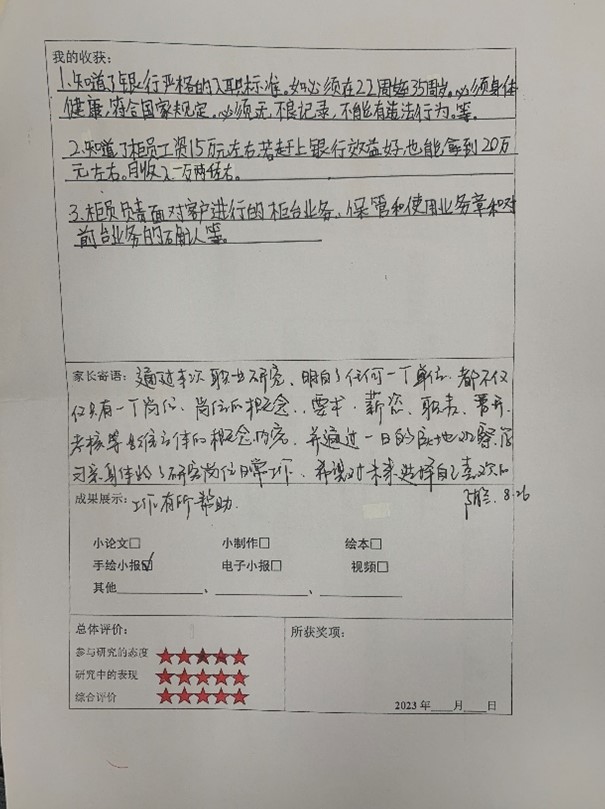 我的收获：
1.知道了银行严格的入职标准。如必须在22周岁至35周岁。必须身体
健康，符合国家规定。必须无不良记录，不能有违法行为。等。
2.知道了柜员工资15万元左右，若赶上银行效益好也能拿到20万
元左右。月收入一万两千左右。
3.柜员负责面对客户进行的柜台业务、保管和使用业务章和对
前台业务的确认等。
家长寄语：通过本次职业研究、明白了任何一个单位、都不仅
仅只有一个岗位、岗位的概念、要求、薪资、职责、晋升、
考核等 立体的概念内容，并通过一日的 地观察、学
习亲身体验了研究岗位日常工作、希望对未来选择自己喜欢的
成果展示：工作有所帮助. 8.26
小论文□ 小制作□ 绘本□
手绘小报☑ 电子小报□ 视频□
其他________、________、________
总体评价： 所获奖项：
参与研究的态度 ★★★★★
研究中的表现 ★★★★★
综合评价 ★★★★★
2023年___月___日